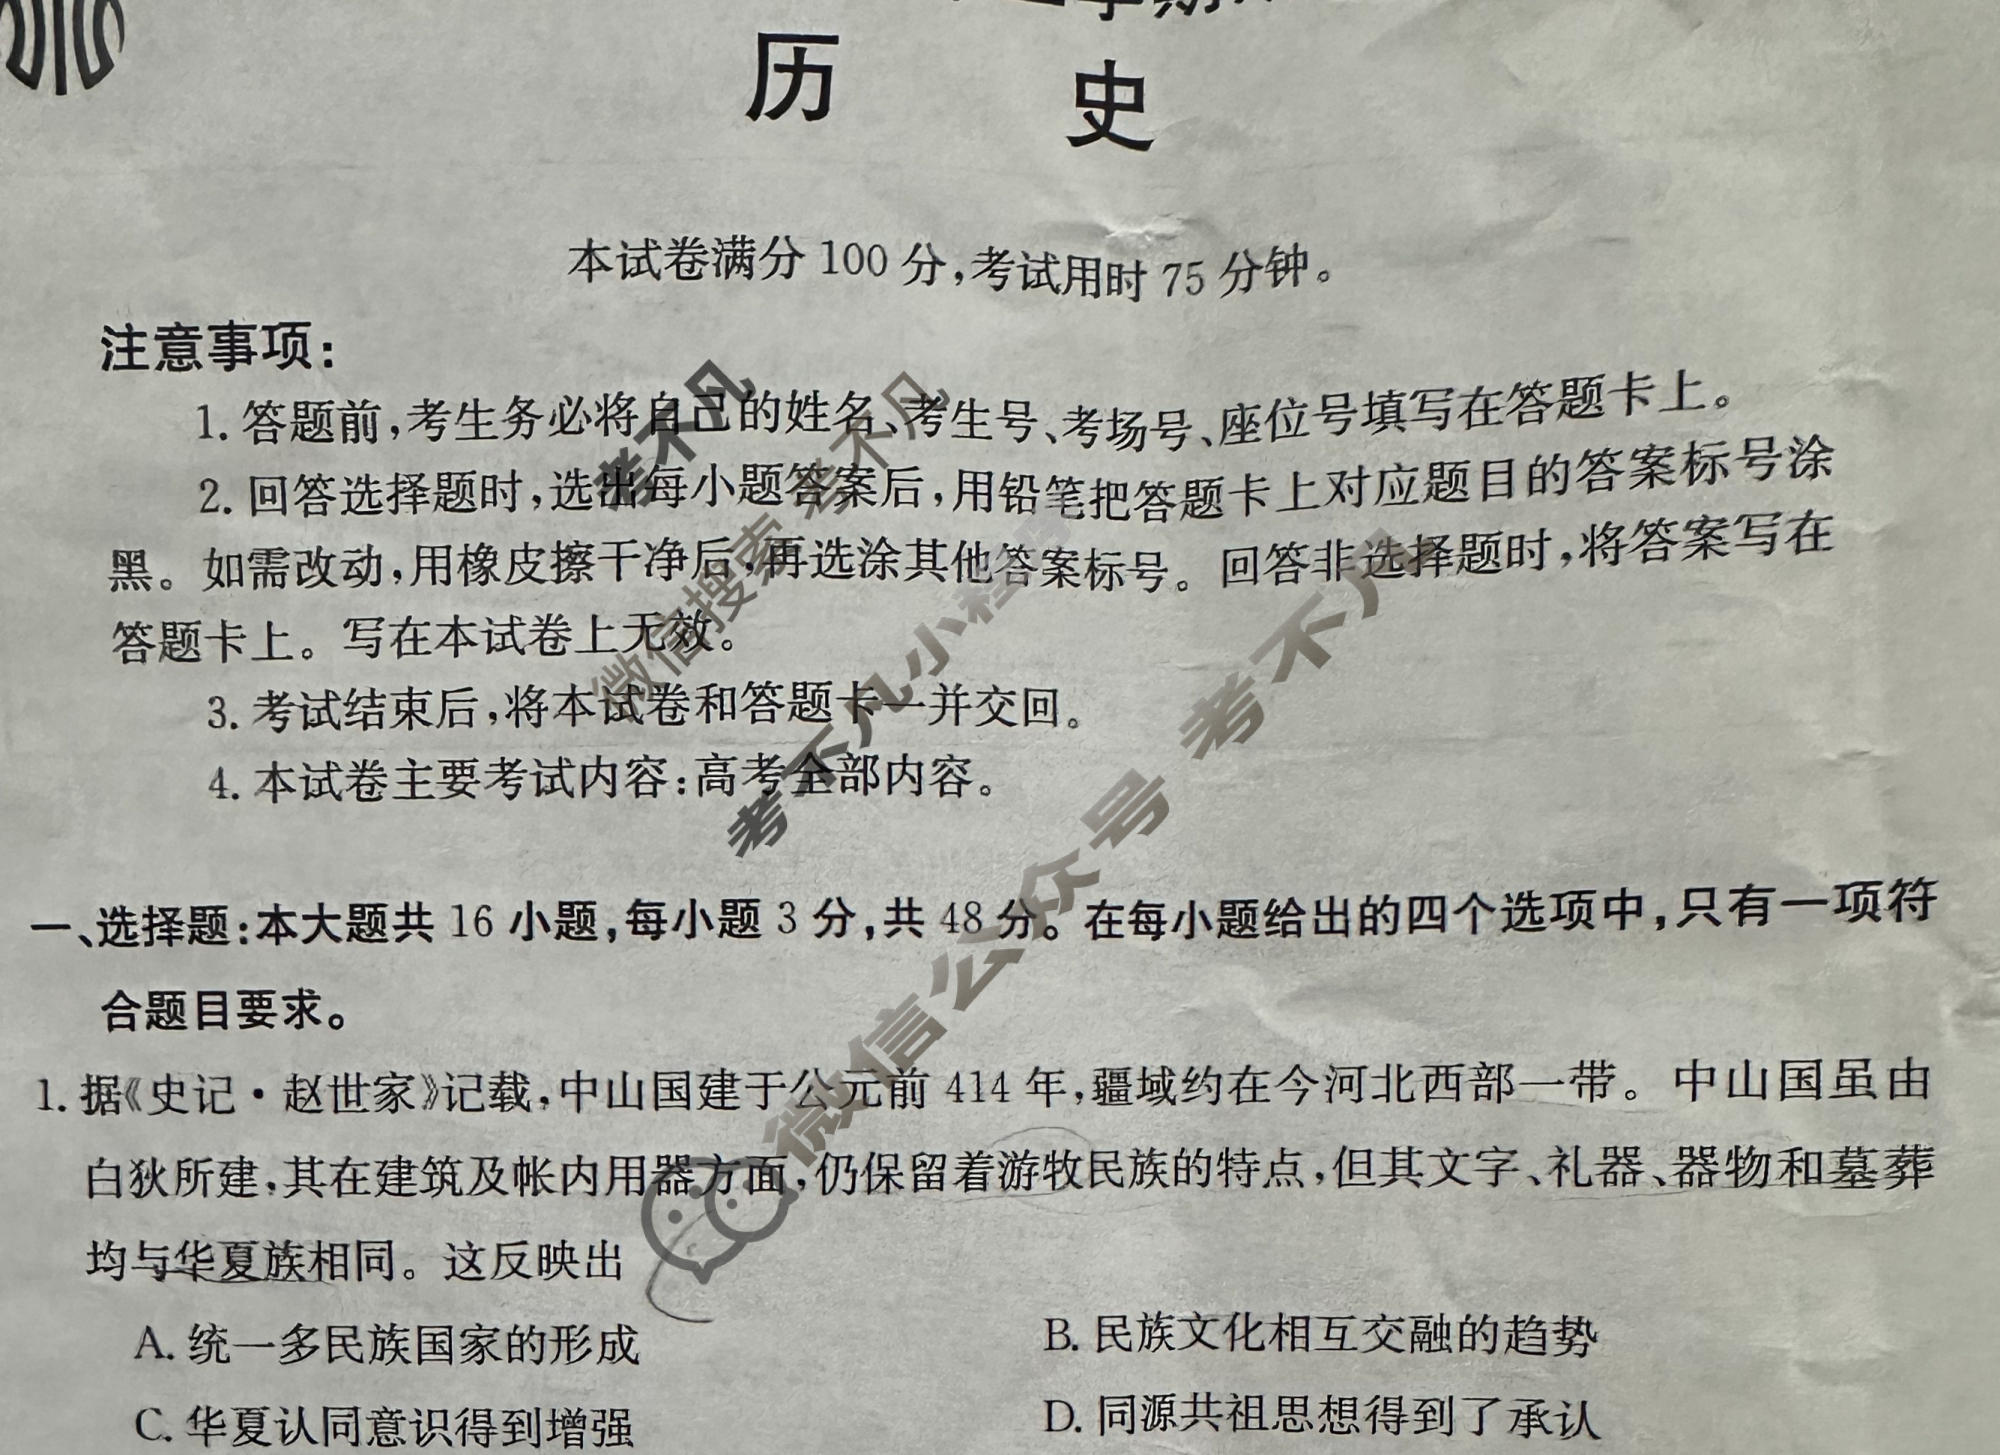 历 史
本试卷满分100分,考试用时75分钟。
注意事项:
1. 答题前,考生务必将自己的姓名、考生号、考场号、座位号填写在答题卡上。
2. 回答选择题时,选出每小题答案后,用铅笔把答题卡上对应题目的答案标号涂
黑。如需改动,用橡皮擦干净后,再选涂其他答案标号。回答非选择题时,将答案写在
答题卡上。写在本试卷上无效。
3. 考试结束后,将本试卷和答题卡一并交回。
4. 本试卷主要考试内容:高考全部内容。
一、选择题:本大题共16小题,每小题3分,共48分。在每小题给出的四个选项中,只有一项符
合题目要求。
1. 据《史记·赵世家》记载,中山国建于公元前414年,疆域约在今河北西部一带。中山国虽由
白狄所建,其在建筑及帐内用器方面,仍保留着游牧民族的特点,但其文字、礼器、器物和墓葬
均与华夏族相同。这反映出
A. 统一多民族国家的形成
B. 民族文化相互交融的趋势
C. 华夏认同意识得到增强
D. 同源共祖思想得到了承认
考不凡
微信搜索 考不凡
考不凡小程
微信公众号 考不凡